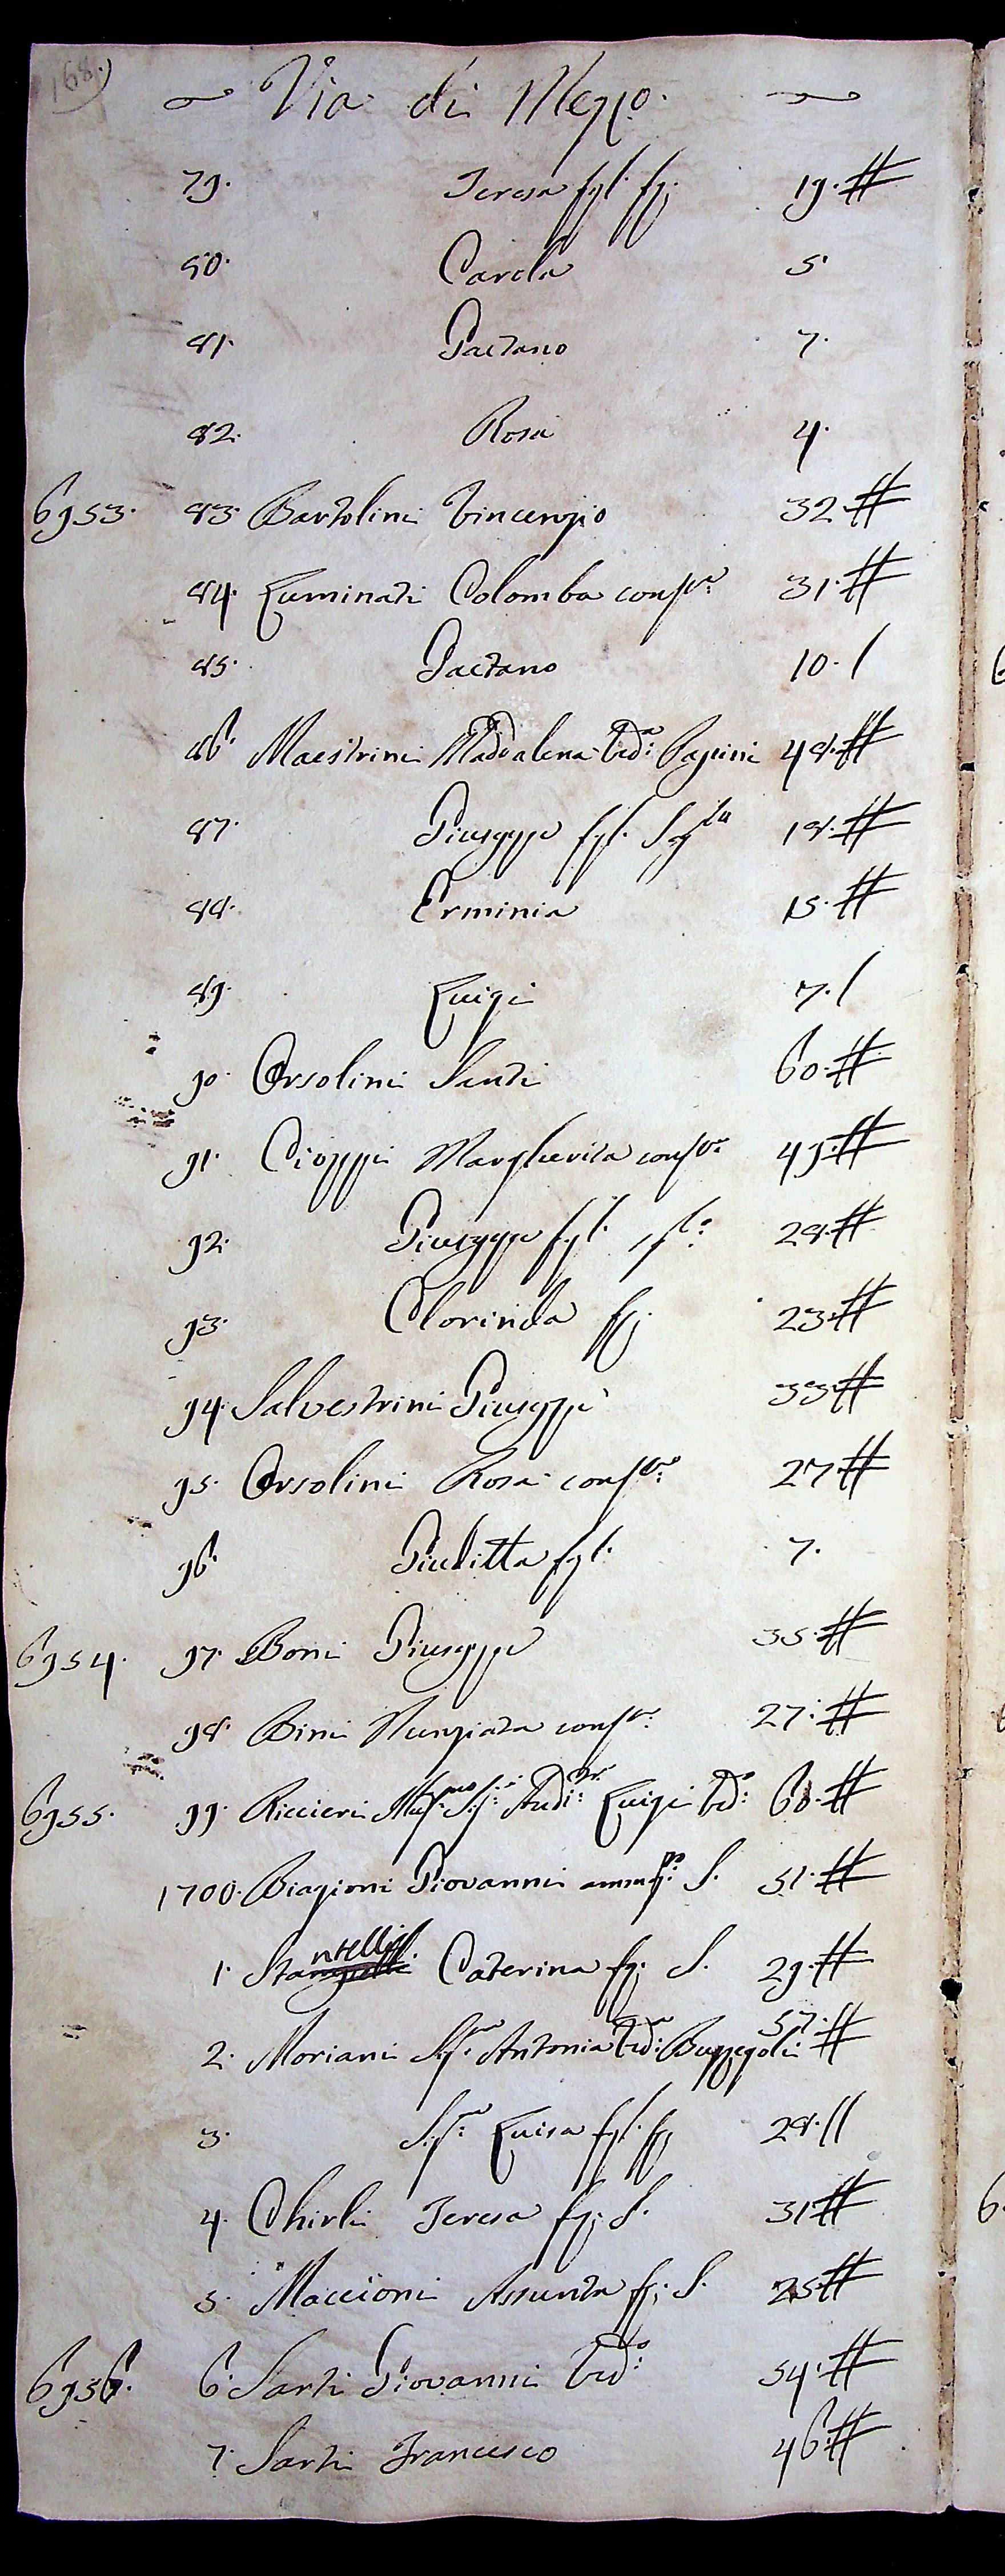 168.)
Via di Mezzo.
79. Teresa fgl. fg. 19. #
80. Carola 5.
81. Gaetano 7.
82. Rosa 4.
6953. 83. Bartolini Vincenzio 32. #
84. Luminati Colomba consrt. 31. #
85. Gaetano 10. /
86. Maestrini Maddalena Vda. Papini 48. #
87. Giuseppe fgl. 18. #
88. Erminia 15. #
89. Luigi 7. /
90. Orsolini Santi 60. #
91. Cioppi Margherita consrt. 49. #
92. Giuseppe fgl. 28. #
93. Clorinda fg. 23. #
94. Salvestrini Giuseppe 33 #
95. Orsolini Rosa consrt. 27. #
96. Giuditta fgl. 7.
6954. 97. Boni Giuseppe 35. #
98. Bini Nunziata consrt. 27. #
6955. 99. Riccieri Luigi Vdo. 60. #
1700. Biagioni Giovanni S. 51. #
1. Stantelli Caterina fg. S. 29. #
2. Moriani Sigra. Antonia Vda. Buzzegoli 57. #
3. Sigra. Luisa fgl. fg. 28. //
4. Chirli Teresa fg. S. 31 #
5. Maccioni Assunta fg. S. 25 #
6956. 6. Sarti Giovanni Vdo. 54. #
7. Sarti Francesco 46. #